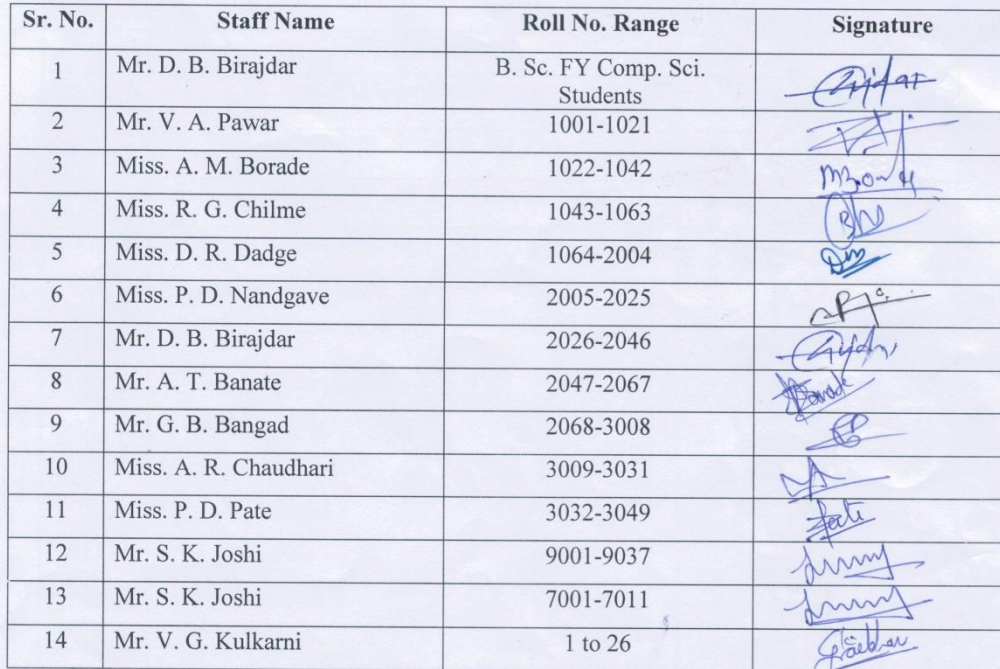 Sr. No. Staff Name Roll No. Range Signature
1 Mr. D. B. Birajdar B. Sc. FY Comp. Sci.
Students
2 Mr. V. A. Pawar 1001-1021
3 Miss. A. M. Borade 1022-1042
4 Miss. R. G. Chilme 1043-1063
5 Miss. D. R. Dadge 1064-2004
6 Miss. P. D. Nandgave 2005-2025
7 Mr. D. B. Birajdar 2026-2046
8 Mr. A. T. Banate 2047-2067
9 Mr. G. B. Bangad 2068-3008
10 Miss. A. R. Chaudhari 3009-3031
11 Miss. P. D. Pate 3032-3049
12 Mr. S. K. Joshi 9001-9037
13 Mr. S. K. Joshi 7001-7011
14 Mr. V. G. Kulkarni 1 to 26